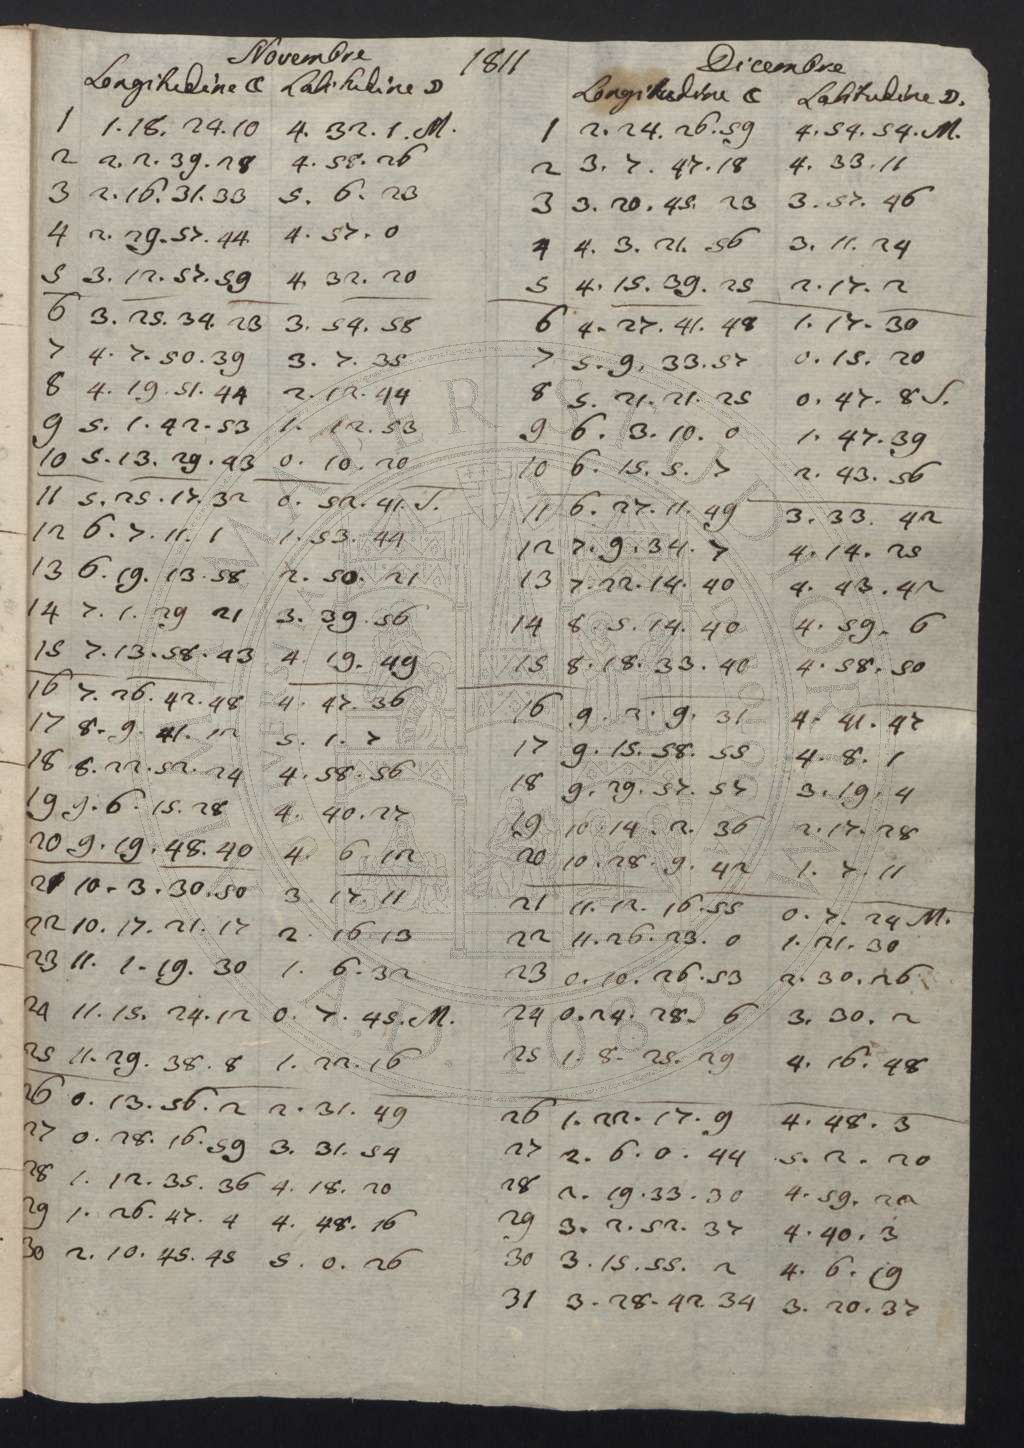 Novembre 1811 Dicembre
Longitudine ☾ Latitudine ☽ Longitudine ☾ Latitudine ☽.
1 1. 18. 24. 10 4. 32. 1. M. 1 2. 24. 26. 59 4. 54. 54. M.
2 2. 2. 39. 28 4. 58. 26 2 3. 7. 47. 18 4. 33. 11
3 2. 16. 31. 33 5. 6. 23 3 3. 20. 45. 23 3. 57. 46
4 2. 29. 57. 44 4. 57. 0 4 4. 3. 21. 56 3. 11. 24
5 3. 12. 57. 59 4. 32. 20 5 4. 15. 39. 25 2. 17. 2
6 3. 25. 34. 23 3. 54. 58 6 4. 27. 41. 48 1. 17. 30
7 4. 7. 50. 39 3. 7. 35 7 5. 9. 33. 57 0. 15. 20
8 4. 19. 51. 44 2. 12. 44 8 5. 21. 21. 25 0. 47. 8 S.
9 5. 1. 42. 53 1. 12. 53 9 6. 3. 10. 0 1. 47. 39
10 5. 13. 29. 43 0. 10. 20 10 6. 15. 5. 7 2. 43. 56
11 5. 25. 17. 32 0. 52. 41. S. 11 6. 27. 11. 49 3. 33. 42
12 6. 7. 11. 1 1. 53. 44 12 7. 9. 34. 7 4. 14. 25
13 6. 19. 13. 58 2. 50. 21 13 7. 22. 14. 40 4. 43. 42
14 7. 1. 29 21 3. 39. 56 14 8. 5. 14. 40 4. 59. 6
15 7. 13. 58. 43 4. 19. 49 15 8. 18. 33. 40 4. 58. 50
16 7. 26. 42. 48 4. 47. 36 16 9. 2. 9. 31 4. 41. 47
17 8. 9. 41. 12 5. 1. 7 17 9. 15. 58. 55 4. 8. 1
18 8. 22. 52. 24 4. 58. 56 18 9. 29. 57. 57 3. 19. 4
19 9. 6. 15. 28 4. 40. 27 19 10. 14. 2. 36 2. 17. 28
20 9. 19. 48. 40 4. 6. 12 20 10. 28. 9. 42 1. 7. 11
21 10. 3. 30. 50 3. 17. 11 21 11. 12. 16. 55 0. 7. 24 M.
22 10. 17. 21. 17 2. 16 13 22 11. 26. 23. 0 1. 21. 30
23 11. 1. 19. 30 1. 6. 32 23 0. 10. 26. 53 2. 30. 26
24 11. 15. 24. 12 0. 7. 45. M. 24 0. 24. 28. 6 3. 30. 2
25 11. 29. 38. 8 1. 22. 16 25 1. 8. 25. 29 4. 16. 48
26 0. 13. 56. 2 2. 31. 49 26 1. 22. 17. 9 4. 48. 3
27 0. 28. 16. 59 3. 31. 54 27 2. 6. 0. 44 5. 2. 20
28 1. 12. 35. 36 4. 18. 20 28 2. 19. 33. 30 4. 59. 22
29 1. 26. 47. 4 4. 48. 16 29 3. 2. 52. 37 4. 40. 3
30 2. 10. 45. 45 5. 0. 26 30 3. 15. 55. 2 4. 6. 19
31 3. 28. 42 34 3. 20. 37